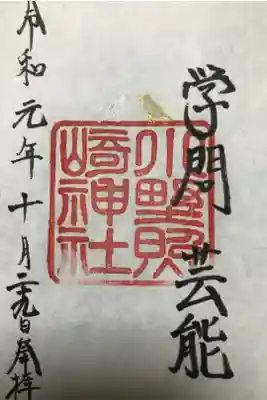 学問 芸能
小野照
崎神社
令和元年十月二九日奉拝